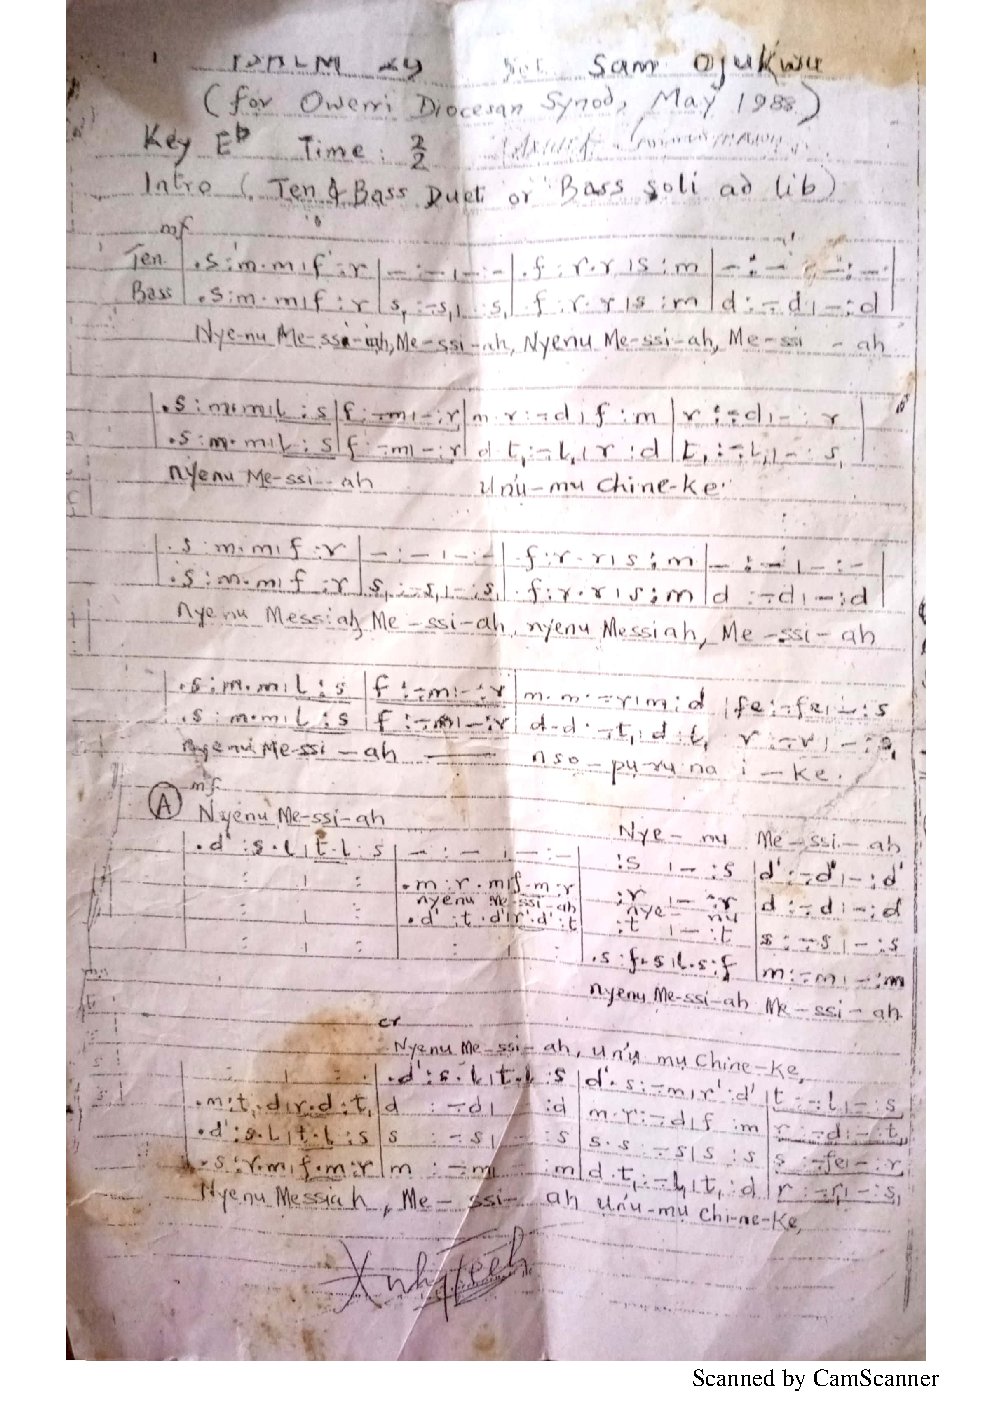 Sam Ojukwu
(for Owerri Diocesan Synod, May 1988)
Key Eb Time: 2/2
Intro (Ten & Bass Duet or Bass soli ad lib)
mf
Ten. | .s : m . m | f : r | – : – | – : – | .f : r . r | s : m | – : – | – : – |
Bass | .s : m . m | f : r | s, : – s, | – : s, | .f : r . r | s : m | d : – d | – : d |
Nye-nu Me-ssi-ah, Me-ssi-ah, Nyenu Me-ssi-ah, Me-ssi - ah
| .s : m . m | l : s | f : – m | – : r | m . r : – d | f : m | r : – d | – : r
| .s : m . m | l : s | f : – m | – : r | d . t, : – l, | r : d | t, : – l, | – : s,
nyenu Me-ssi-ah unu-mu Chine-ke
| .s : m . m | f : r | – : – | – : – | .f : r . r | s : m | – : – | – : – |
| .s : m . m | f : r | s, : – s, | – : s, | .f : r . r | s : m | d : – d | – : d |
nye nu Messiah, Me-ssi-ah, nyenu Messiah, Me-ssi-ah
| .s : m . m | l : s | f : – m | – : r | m . m : – r | m : d | fe : – fe | – : s
| .s : m . m | l : s | f : – m | – : r | d . d : – t, | d : t, | r : – r | – : s,
Nyenu Me-ssi-ah nso-pu-ru na i-ke.
mf
(A) Nyenu Me-ssi-ah Nye-nu Me-ssi-ah
| .d' : s . l | t . l : s | – : – | – : – | : s | – : s | d' : – d' | – : d'
: | : | .m : r . m | f . m : r | : r | – : r | d : – d | – : d
nyenu Me-ssi-ah nye-nu
: | : | .d' : t . d' | r' . d' : t | : t | – : t | s : – s | – : s
: | : | : | : | .s : f . s | l . s : f | m : – m | – : m
nyenu Me-ssi-ah Me-ssi-ah
cr
Nyenu Me-ssi-ah, unu mu Chine-ke,
: | : | .d' : s . l | t . l : s | d' . s : – m | r' : d' | t : – l | – : s
.m : t, . d | r . d : t, | d : – d | – : d | m . r : – d | f : m | r : – d | – : t,
.d' : s . l | t . l : s | s : – s | – : s | s . s : – s | s : s | s : – fe | – : r
.s : r . m | f . m : r | m : – m | – : m | d . t, : – l, | t, : d | r : – r, | – : s,
Nyenu Messiah, Me-ssi-ah unu-mu Chi-ne-ke,
Scanned by CamScanner